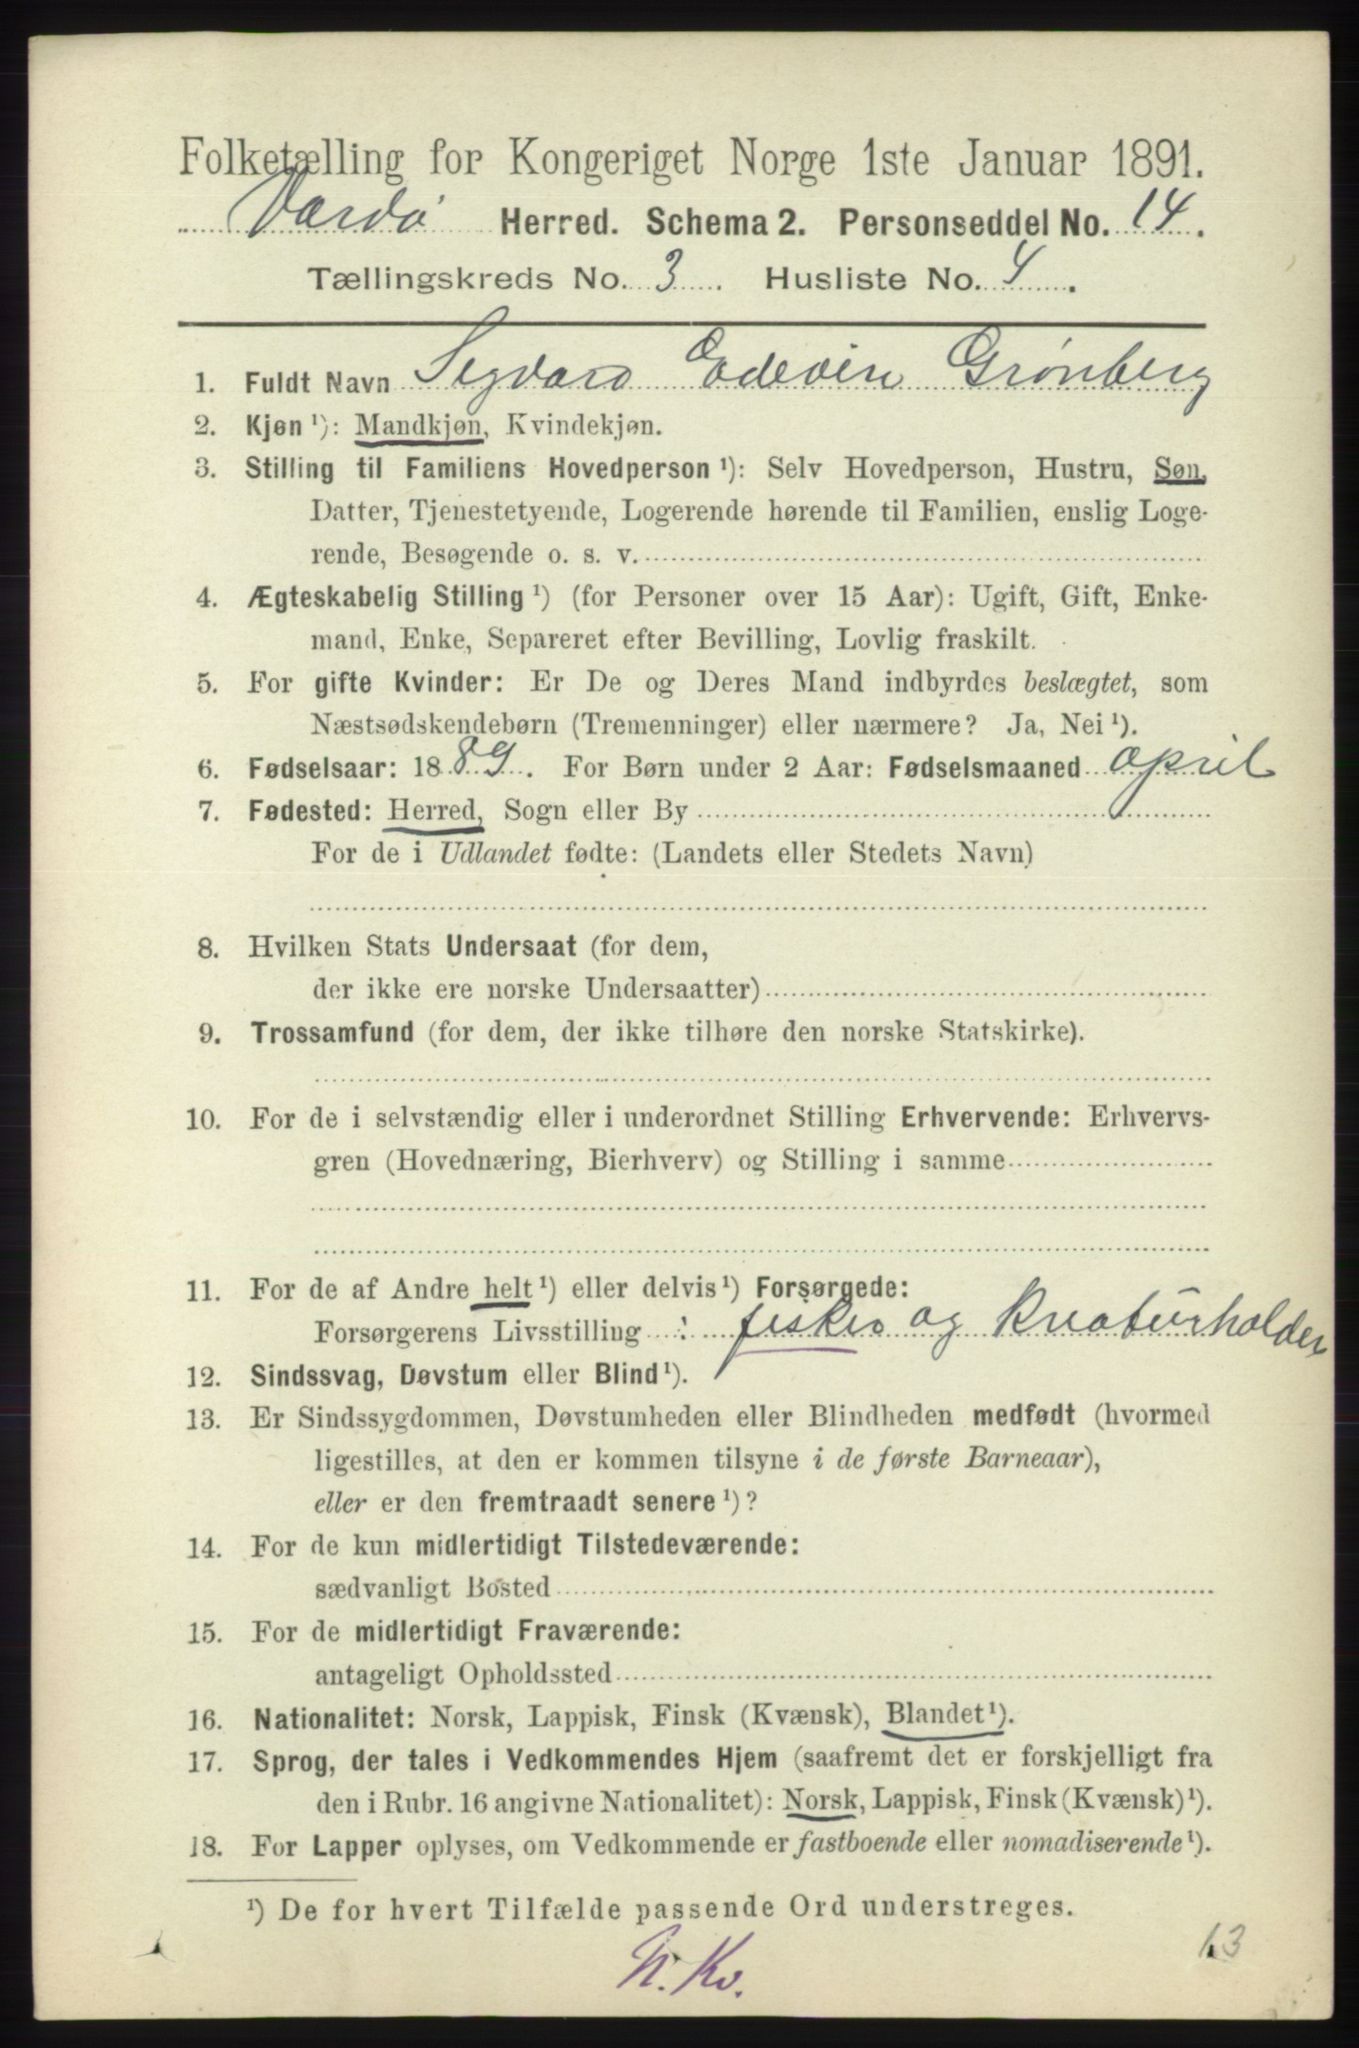 Folketælling for Kongeriget Norge 1ste Januar 1891.
Vardø Herred. Schema 2. Personseddel No. 14.
Tællingskreds No. 3. Husliste No. 4.
1. Fuldt Navn Sigvard Edevin Grønberg
2. Kjøn ¹): Mandkjøn, Kvindekjøn.
3. Stilling til Familiens Hovedperson ¹): Selv Hovedperson, Hustru, Søn,
Datter, Tjenestetyende, Logerende hørende til Familien, enslig Loge-
rende, Besøgende o. s. v.
4. Ægteskabelig Stilling ¹) (for Personer over 15 Aar): Ugift, Gift, Enke-
mand, Enke, Separeret efter Bevilling, Lovlig fraskilt.
5. For gifte Kvinder: Er De og Deres Mand indbyrdes beslægtet, som
Næstsødskendebørn (Tremenninger) eller nærmere? Ja, Nei ¹).
6. Fødselsaar: 1889. For Børn under 2 Aar: Fødselsmaaned april
7. Fødested: Herred, Sogn eller By
For de i Udlandet fødte: (Landets eller Stedets Navn)
8. Hvilken Stats Undersaat (for dem,
der ikke ere norske Undersaatter)
9. Trossamfund (for dem, der ikke tilhøre den norske Statskirke).
10. For de i selvstændig eller i underordnet Stilling Erhvervende: Erhvervs-
gren (Hovednæring, Bierhverv) og Stilling i samme
11. For de af Andre helt ¹) eller delvis ¹) Forsørgede:
Forsørgerens Livsstilling : fisker og Kreaturholder
12. Sindssvag, Døvstum eller Blind ¹).
13. Er Sindssygdommen, Døvstumheden eller Blindheden medfødt (hvormed
ligestilles, at den er kommen tilsyne i de første Barneaar),
eller er den fremtraadt senere ¹)?
14. For de kun midlertidigt Tilstedeværende:
sædvanligt Bosted
15. For de midlertidigt Fraværende:
antageligt Opholdssted
16. Nationalitet: Norsk, Lappisk, Finsk (Kvænsk), Blandet ¹).
17. Sprog, der tales i Vedkommendes Hjem (saafremt det er forskjelligt fra
den i Rubr. 16 angivne Nationalitet): Norsk, Lappisk, Finsk (Kvænsk) ¹).
18. For Lapper oplyses, om Vedkommende er fastboende eller nomadiserende ¹).
¹) De for hvert Tilfælde passende Ord understreges.
N. Kv.
13